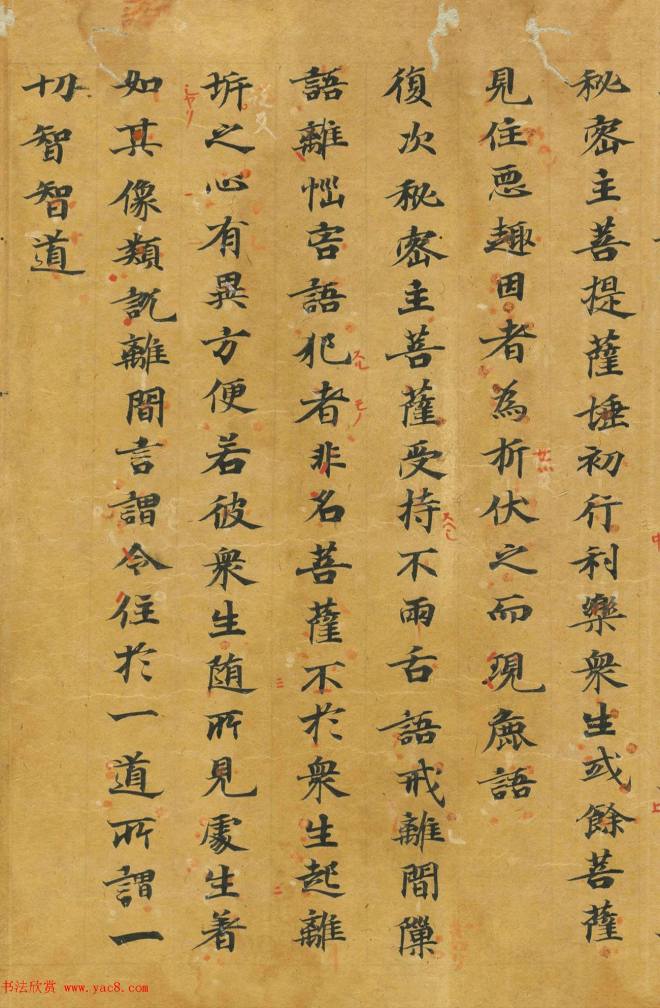 秘密主菩提薩埵初行利樂衆生或餘菩薩
見住惡趣因者為折伏之而現麁語
復次秘密主菩薩受持不兩舌語戒離間隟
語離惱害語犯者非名菩薩不於衆生起離
坼之心有異方便若彼衆生随所見處生着
如其像類説離間言謂令住於一道所謂一
切智智道
书法欣赏 www.yac8.com